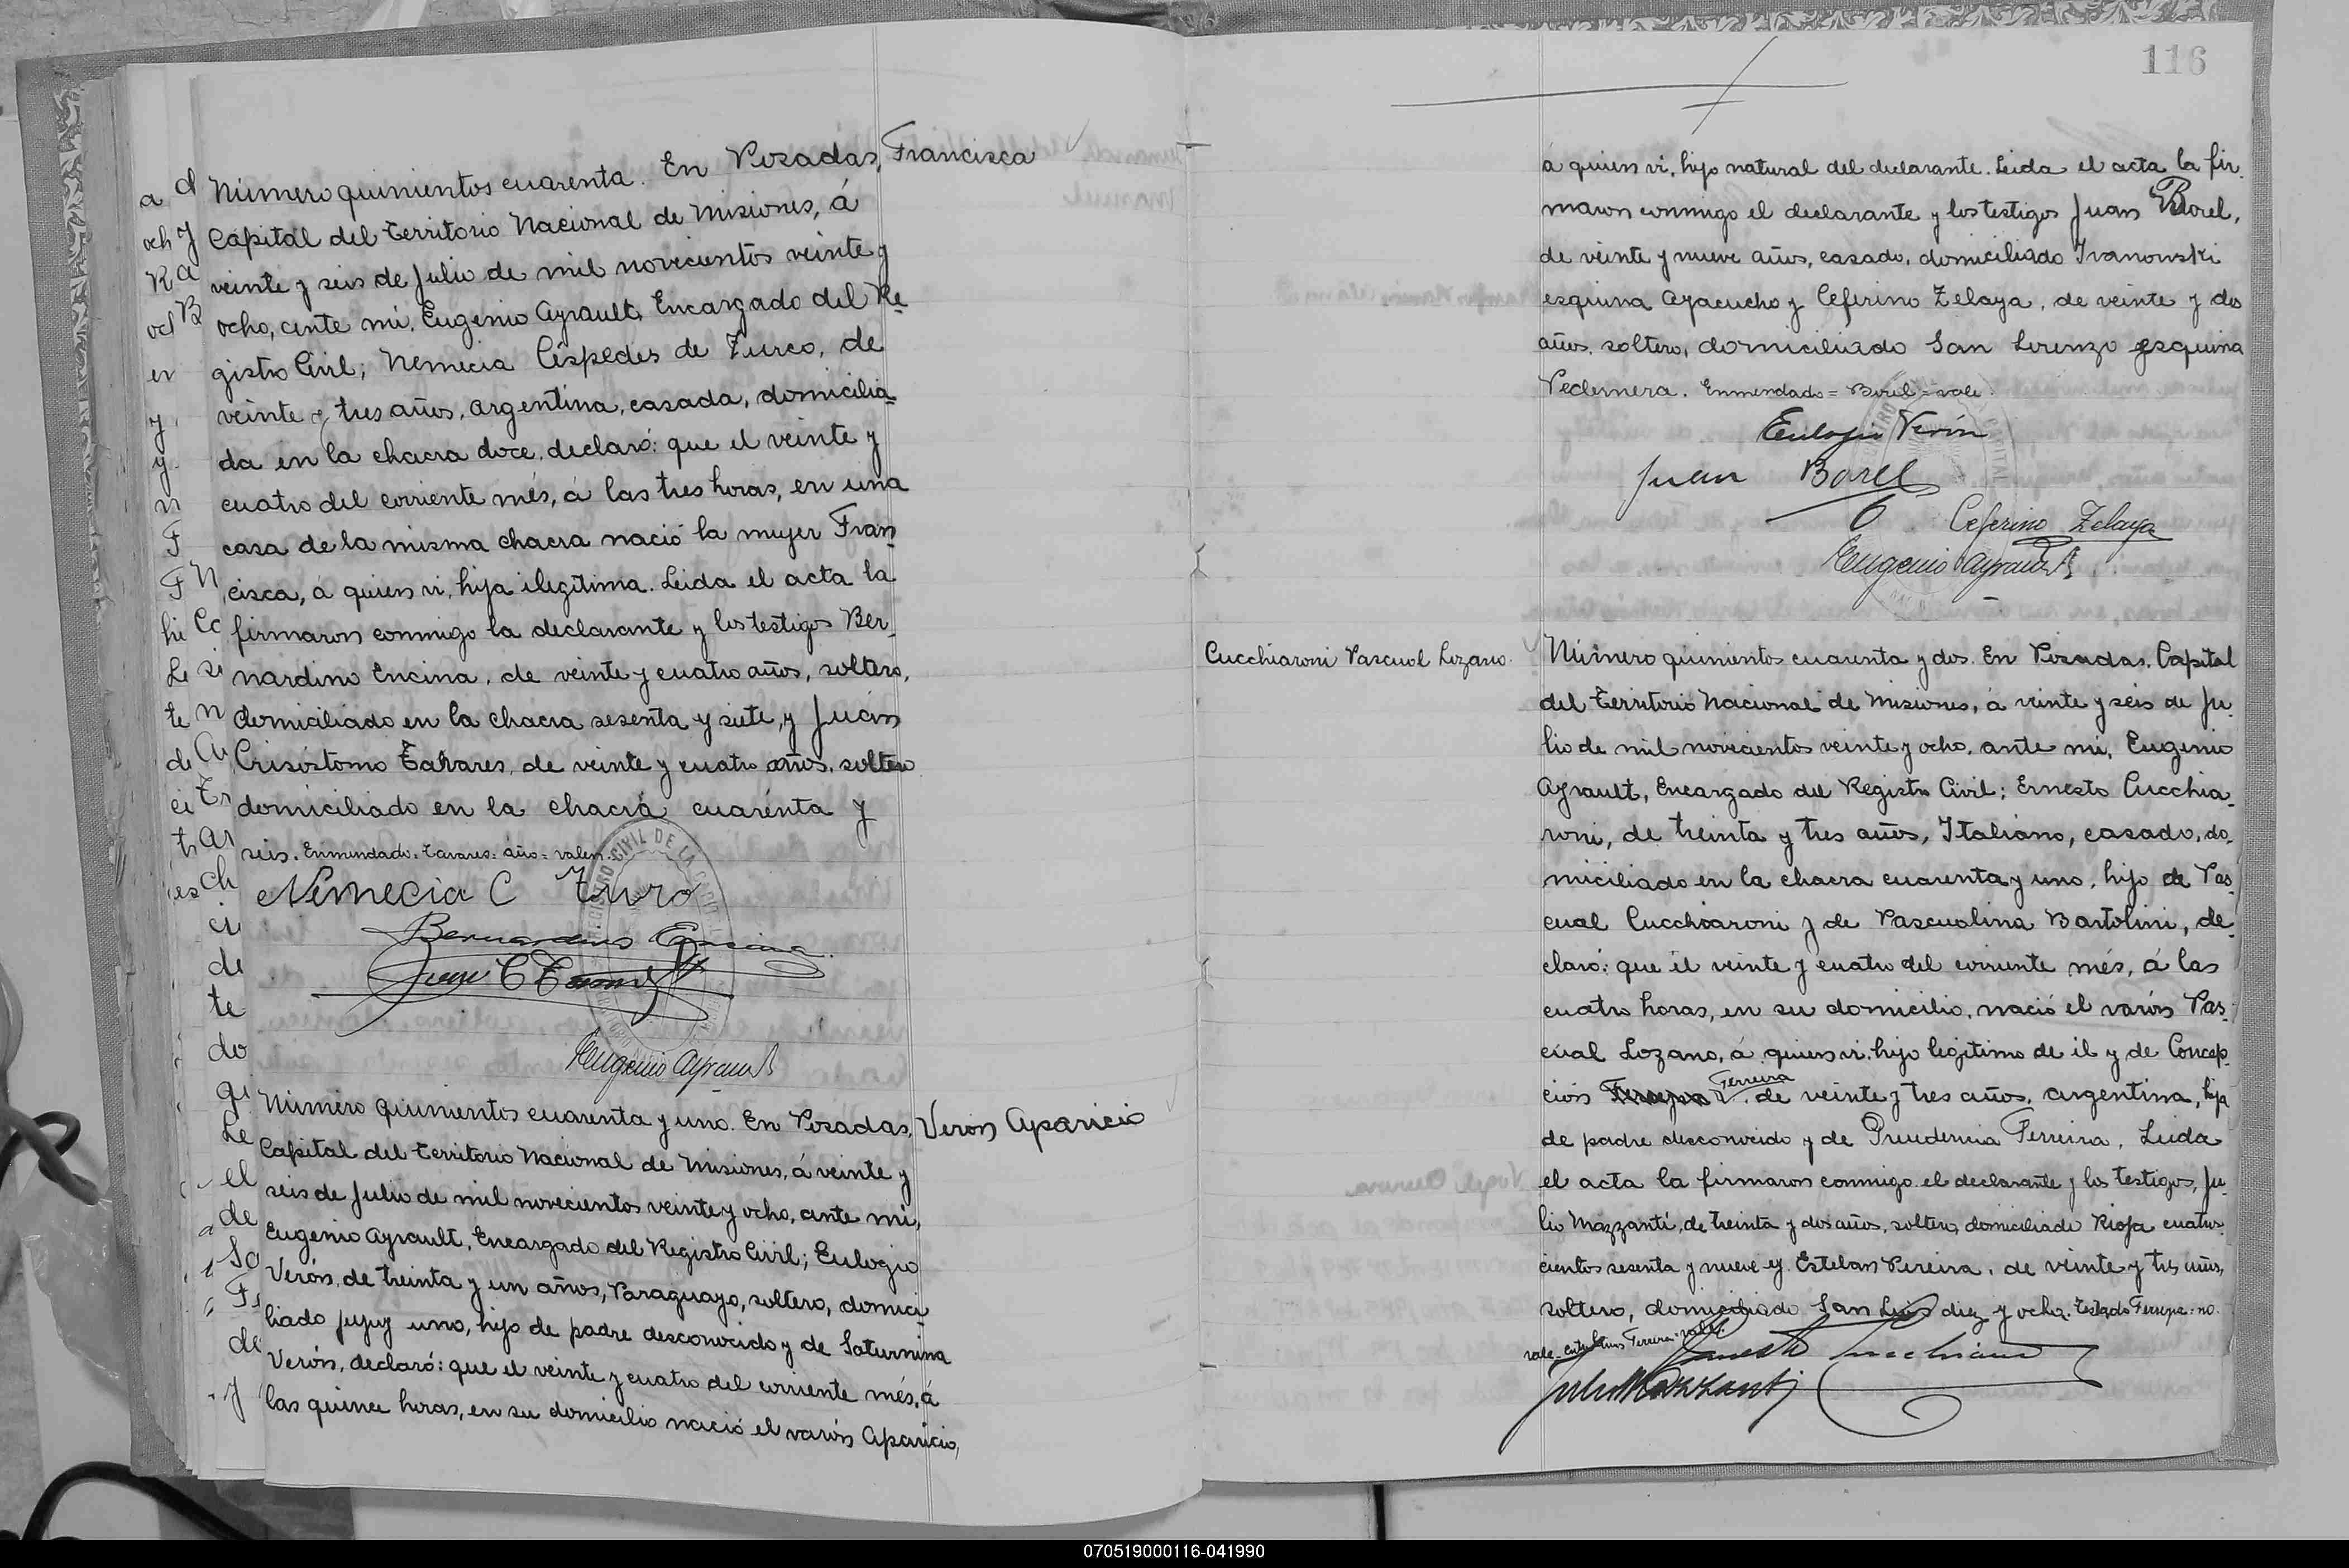 Francisca
Número quinientos cuarenta. En Posadas,
Capital del Territorio Nacional de Misiones, á
veinte y seis de Julio de mil novecientos veinte y
ocho, ante mí, Eugenio Ayrault, Encargado del Re-
gistro Civil; Nemecia Céspedes de Turco, de
veinte y tres años, argentina, casada, domicilia-
da en la chacra doce, declaró: que el veinte y
cuatro del corriente més, á las tres horas, en una
casa de la misma chacra nació la mujer Fran-
cisca, á quien vi, hija ilegítima. Leida el acta la
firmaron conmigo la declarante y los testigos Ber-
nardino Encina, de veinte y cuatro años, soltero,
domiciliado en la chacra sesenta y siete, y Juan
Crisóstomo Tavares, de veinte y cuatro años, soltero
domiciliado en la chacra cuarenta y
seis. Enmendado. Tavares = año = valen.
Nemecia C Turo
Bernardino Encina
Juan C
Eugenio Ayrault
Verón Aparicio
Número quinientos cuarenta y uno. En Posadas,
Capital del Territorio Nacional de Misiones, á veinte y
seis de Julio de mil novecientos veinte y ocho, ante mí,
Eugenio Ayrault, Encargado del Registro Civil; Eulogio
Verón, de treinta y un años, Paraguayo, soltero, domici-
liado Jujuy uno, hijo de padre desconocido y de Saturnina
Verón, declaró: que el veinte y cuatro del corriente més, á
las quince horas, en su domicilio nació el varón Aparicio,
116
á quien vi, hijo natural del declarante. Leida el acta la fir-
maron conmigo el declarante y los testigos Juan Borel,
de veinte y nueve años, casado, domiciliado Ivanowski
esquina Ayacucho y Ceferino Zelaya, de veinte y dos
años, soltero, domiciliado San Lorenzo esquina
Pedernera. Enmendado = Borel = vale.
Eulogio Verón
Juan Borel
Ceferino Zelaya
Eugenio Ayrault
Cucchiaroni Pascual Lozano.
Número quinientos cuarenta y dos. En Posadas, Capital
del Territorio Nacional de Misiones, á veinte y seis de Ju-
lio de mil novecientos veinte y ocho, ante mí, Eugenio
Ayrault, Encargado del Registro Civil; Ernesto Cucchia-
roni, de treinta y tres años, Italiano, casado, do-
miciliado en la chacra cuarenta y uno, hijo de Pas-
cual Cucchiaroni y de Pascualina Bartolini, de-
claró: que el veinte y cuatro del corriente més, á las
cuatro horas, en su domicilio, nació el varón Pas-
cual Lozano, á quien vi, hijo legítimo de él y de Concep-
ción Ferreira de veinte y tres años, argentina, hija
de padre desconocido y de Prudencia Ferreira. Leida
el acta la firmaron conmigo el declarante y los testigos, Ju-
lio Mazzanti, de treinta y dos años, soltero, domiciliado Rioja cuatro-
cientos sesenta y nueve y Esteban Pereira, de veinte y tres años,
soltero, domiciliado San Luis diez y ocho. Testado Ferreyra = no
vale = Entre líneas Ferreira = vale.
Ernesto Cucchiaroni
Julio Mazzanti
070519000116-041990